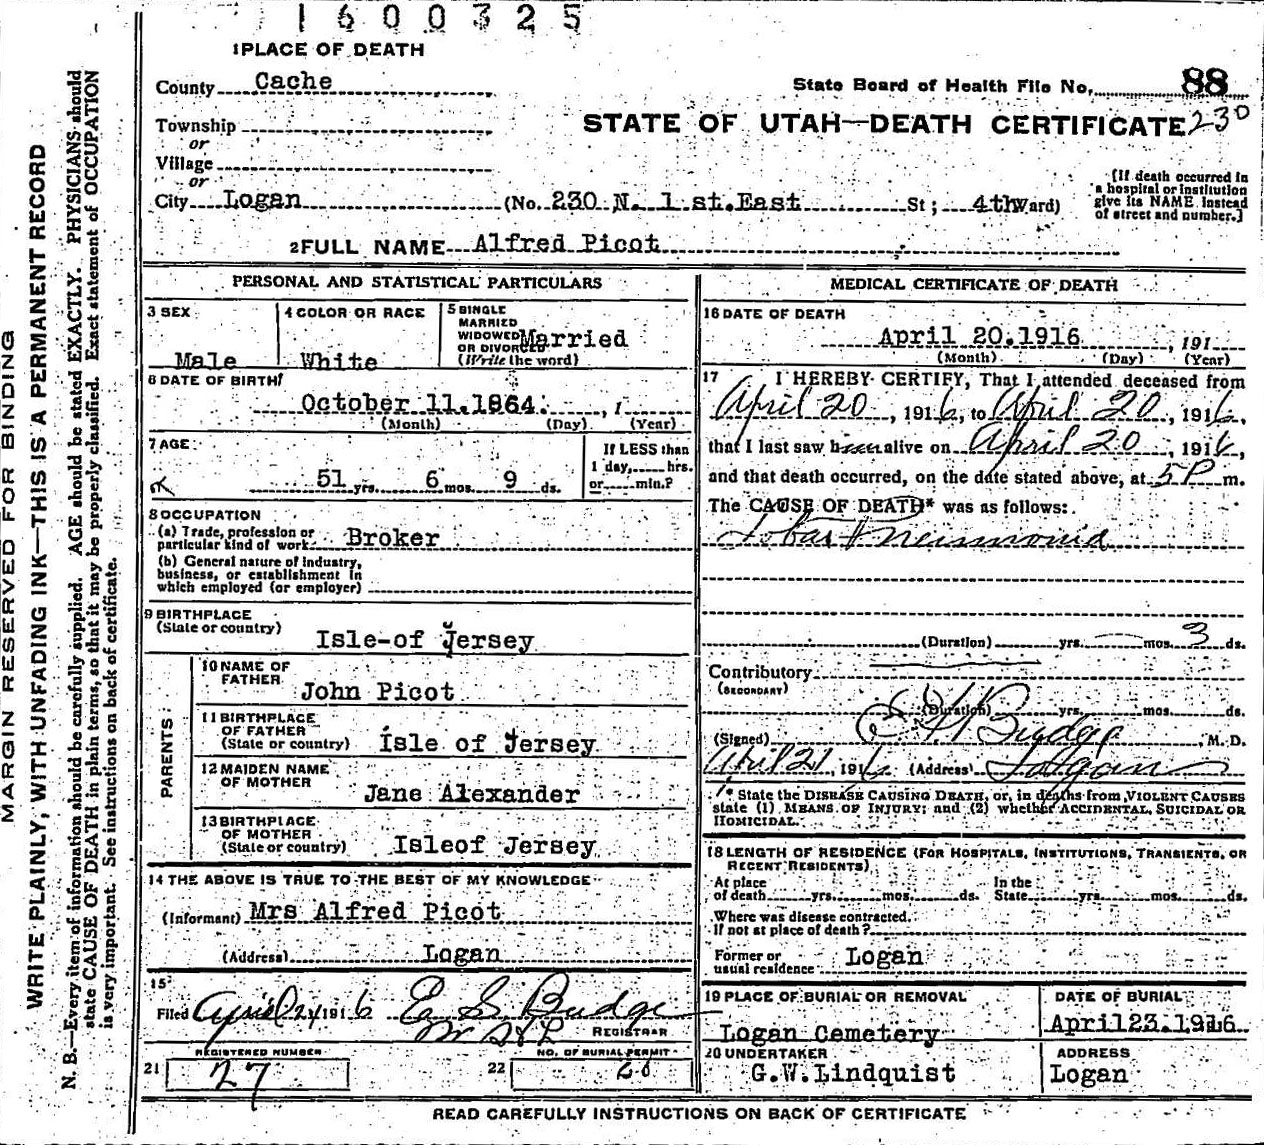 1600325
1 PLACE OF DEATH
County Cache
State Board of Health File No. 88
Township
or
STATE OF UTAH—DEATH CERTIFICATE 230
Village
or
City Logan (No. 230 N. 1 st. East St; 4th Ward)
[If death occurred in
a hospital or institution
give its NAME instead
of street and number.]
2 FULL NAME Alfred Picot
PERSONAL AND STATISTICAL PARTICULARS
3 SEX
Male
4 COLOR OR RACE
White
5 SINGLE
MARRIED
WIDOWED
OR DIVORCED
(Write the word)
Married
6 DATE OF BIRTH
October 11.1864. , 1
(Month) (Day) (Year)
7 AGE
51 yrs. 6 mos. 9 ds.
If LESS than
1 day, hrs.
or min.?
8 OCCUPATION
(a) Trade, profession or
particular kind of work Broker
(b) General nature of industry,
business, or establishment in
which employed (or employer)
9 BIRTHPLACE
(State or country)
Isle-of Jersey
PARENTS
10 NAME OF
FATHER
John Picot
11 BIRTHPLACE
OF FATHER
(State or country) Isle of Jersey
12 MAIDEN NAME
OF MOTHER
Jane Alexander
13 BIRTHPLACE
OF MOTHER
(State or country) Isleof Jersey
14 THE ABOVE IS TRUE TO THE BEST OF MY KNOWLEDGE
(Informant) Mrs Alfred Picot
(Address) Logan
15
Filed April 21 1916 E S Budge
REGISTRAR
REGISTERED NUMBER
21 27
NO. OF BURIAL PERMIT
22 26
MEDICAL CERTIFICATE OF DEATH
16 DATE OF DEATH
April 20.1916 , 191
(Month) (Day) (Year)
17 I HEREBY CERTIFY, That I attended deceased from
April 20, 1916, to April 20, 1916,
that I last saw h alive on April 20, 1916,
and that death occurred, on the date stated above, at 5 P m.
The CAUSE OF DEATH* was as follows:
Lobar Pneumonia
(Duration) yrs. mos. 3 ds.
Contributory
(SECONDARY)
(Duration) yrs. mos. ds.
(Signed) Budge, M. D.
April 21, 1916 (Address) Logan
* State the DISEASE CAUSING DEATH, or, in deaths from VIOLENT CAUSES
state (1) MEANS OF INJURY; and (2) whether ACCIDENTAL, SUICIDAL OR
HOMICIDAL.
18 LENGTH OF RESIDENCE (FOR HOSPITALS, INSTITUTIONS, TRANSIENTS, OR
RECENT RESIDENTS)
At place
of death yrs. mos. ds.
In the
State yrs. mos. ds.
Where was disease contracted.
If not at place of death?
Former or
usual residence Logan
19 PLACE OF BURIAL OR REMOVAL
Logan Cemetery
DATE OF BURIAL
April 23.1916
20 UNDERTAKER
G.W.Lindquist
ADDRESS
Logan
READ CAREFULLY INSTRUCTIONS ON BACK OF CERTIFICATE
MARGIN RESERVED FOR BINDING
WRITE PLAINLY, WITH UNFADING INK—THIS IS A PERMANENT RECORD
N. B.—Every item of information should be carefully supplied. AGE should be stated EXACTLY. PHYSICIANS should
state CAUSE OF DEATH in plain terms, so that it may be properly classified. Exact statement of OCCUPATION
is very important. See instructions on back of certificate.